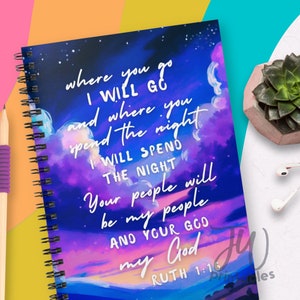 where you go
I WILL GO
and where you
spend the night
I WILL SPEND
THE NIGHT
Your people will
be my people
AND YOUR GOD
my God
RUTH 1:16